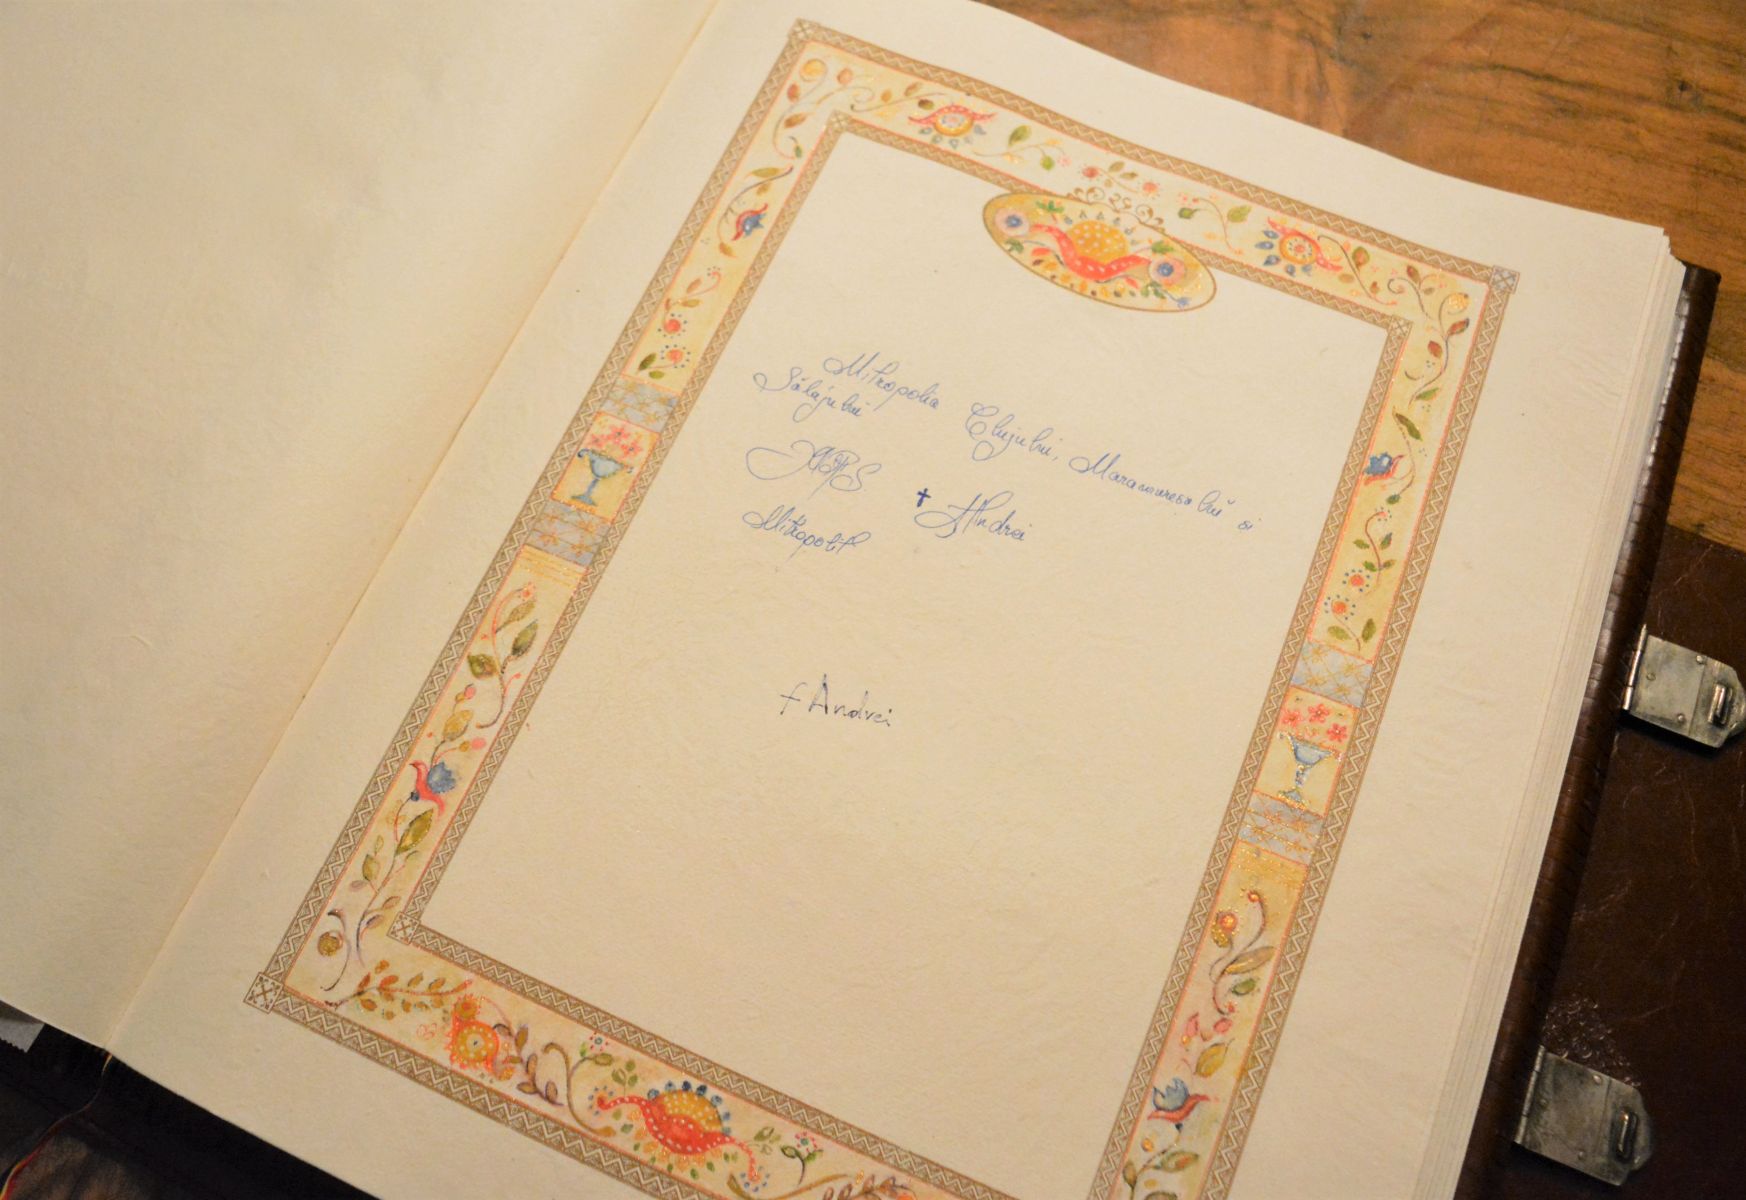 Mitropolia Clujului, Maramuresului si
Sălajului
ÎPS. † Andrei
Mitropolit
† Andrei